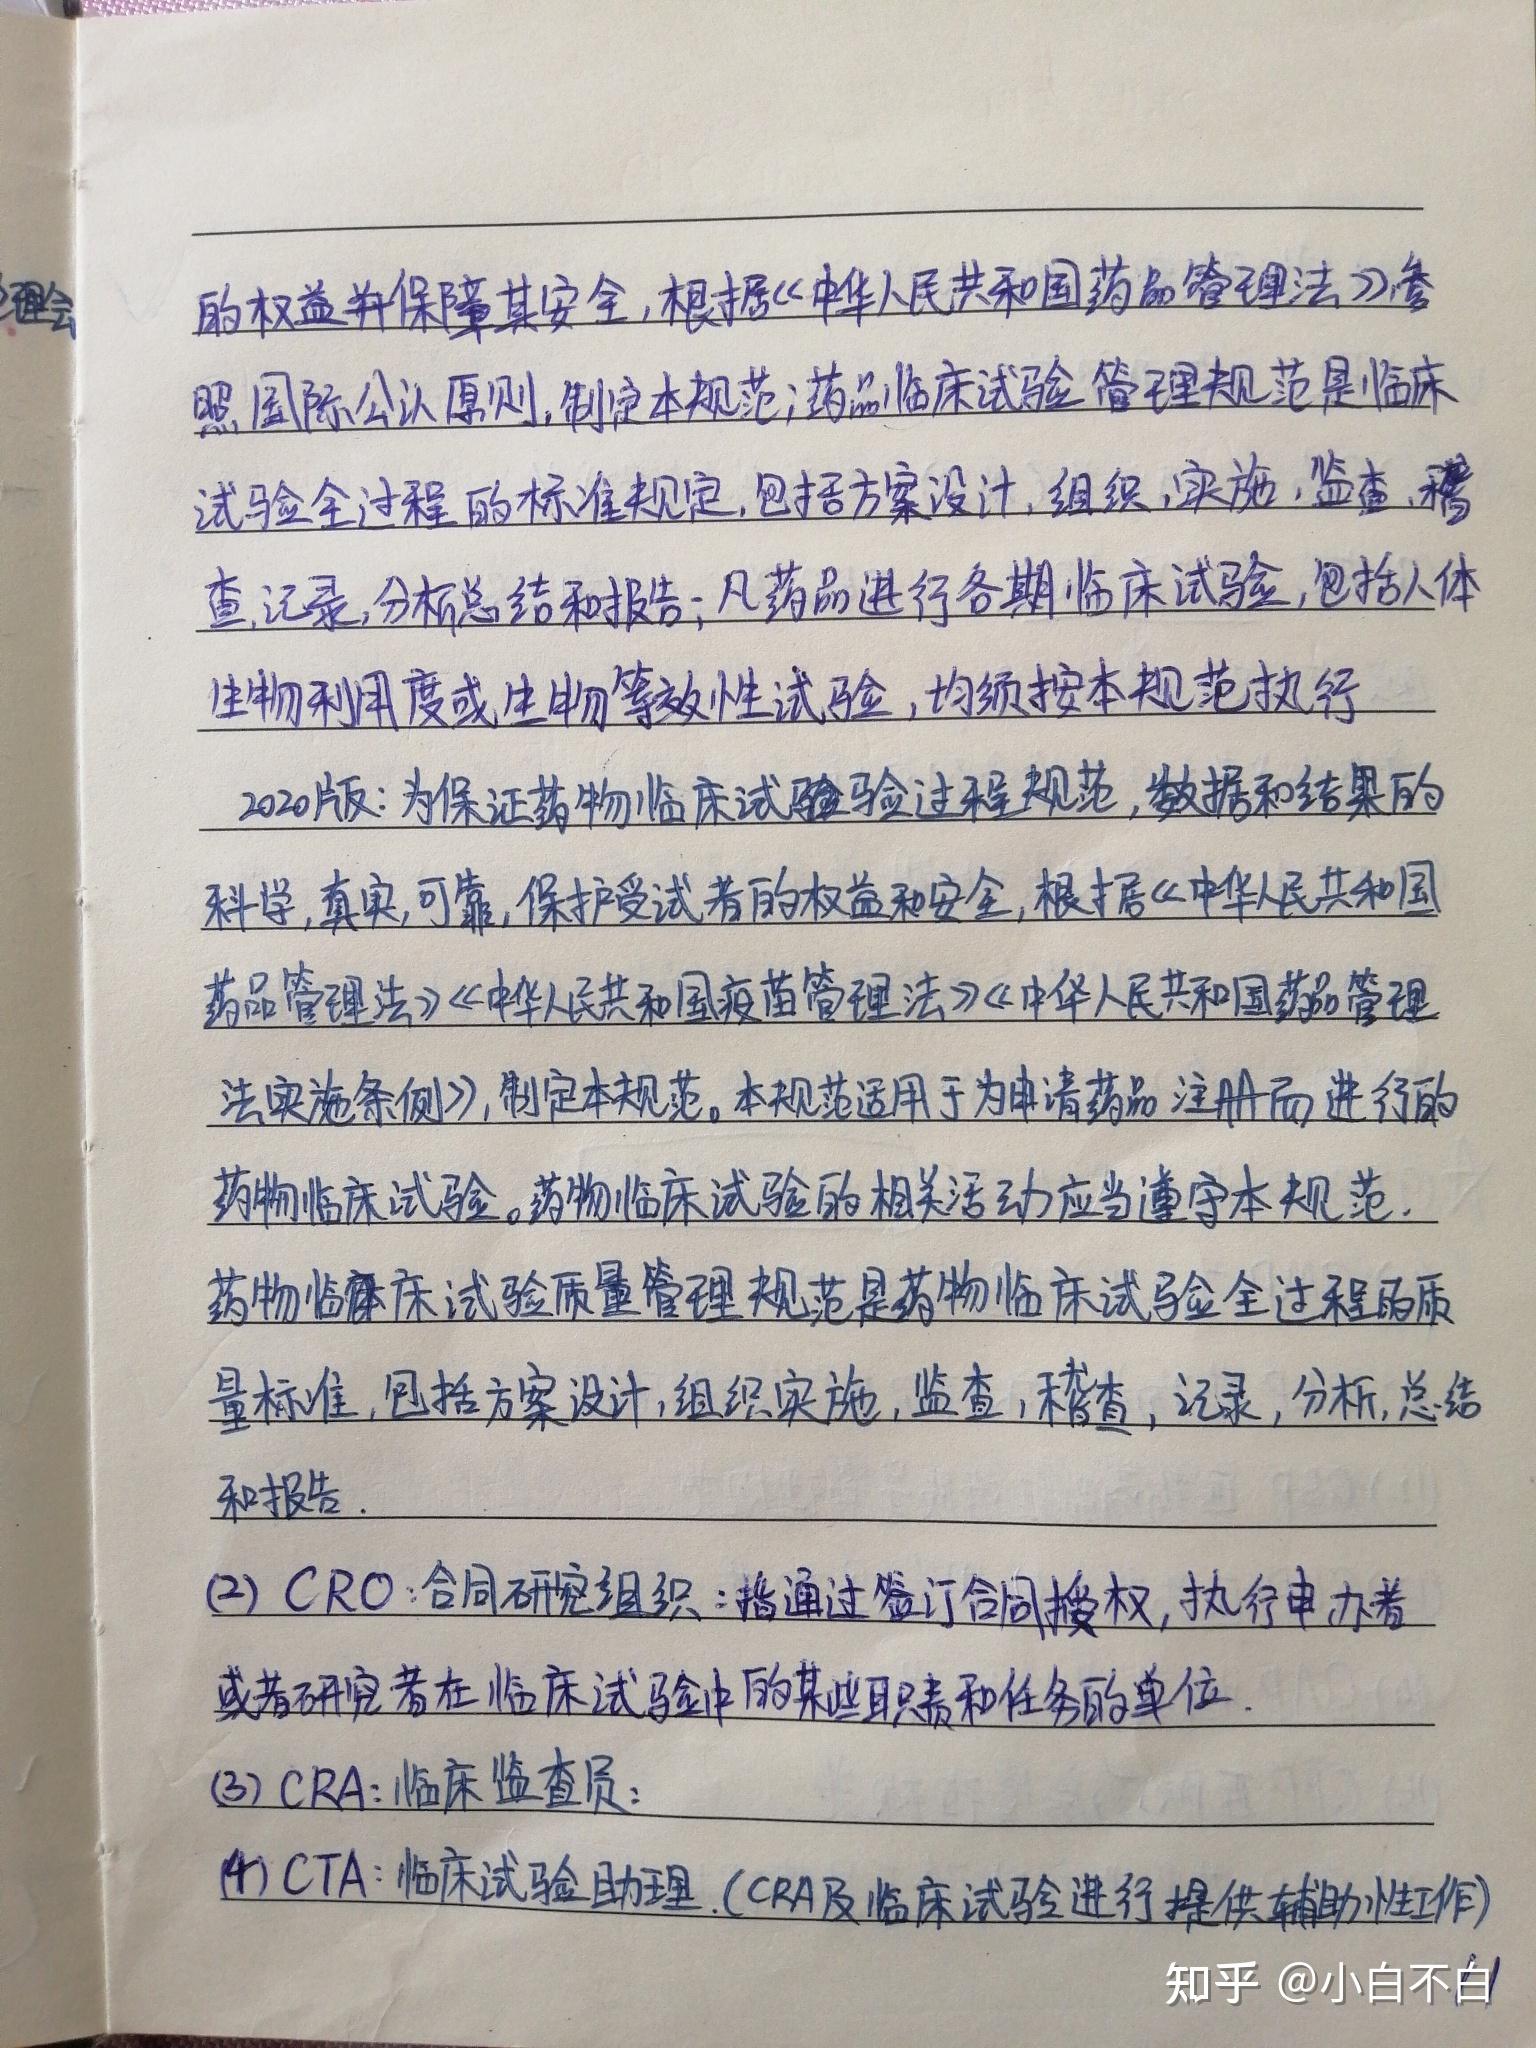 理会
的权益并保障其安全,根据《中华人民共和国药品管理法》,参
照国际公认原则,制定本规范;药品临床试验管理规范是临床
试验全过程的标准规定,包括方案设计,组织,实施,监查,稽
查,记录,分析总结和报告;凡药品进行各期临床试验,包括人体
生物利用度或生物等效性试验,均须按本规范执行
2020版:为保证药物临床试验验过程规范,数据和结果的
科学,真实,可靠,保护受试者的权益和安全,根据《中华人民共和国
药品管理法》《中华人民共和国疫苗管理法》《中华人民共和国药品管理
法实施条例》,制定本规范。本规范适用于为申请药品注册而进行的
药物临床试验。药物临床试验的相关活动应当遵守本规范.
药物临床试验质量管理规范是药物临床试验全过程的质
量标准,包括方案设计,组织实施,监查,稽查,记录,分析,总结
和报告.
(2) CRO:合同研究组织:指通过签订合同授权,执行申办者
或者研究者在临床试验中的某些职责和任务的单位.
(3) CRA:临床监查员:
(4) CTA:临床试验助理.(CRA及临床试验进行提供辅助性工作)
知乎 @小白不白